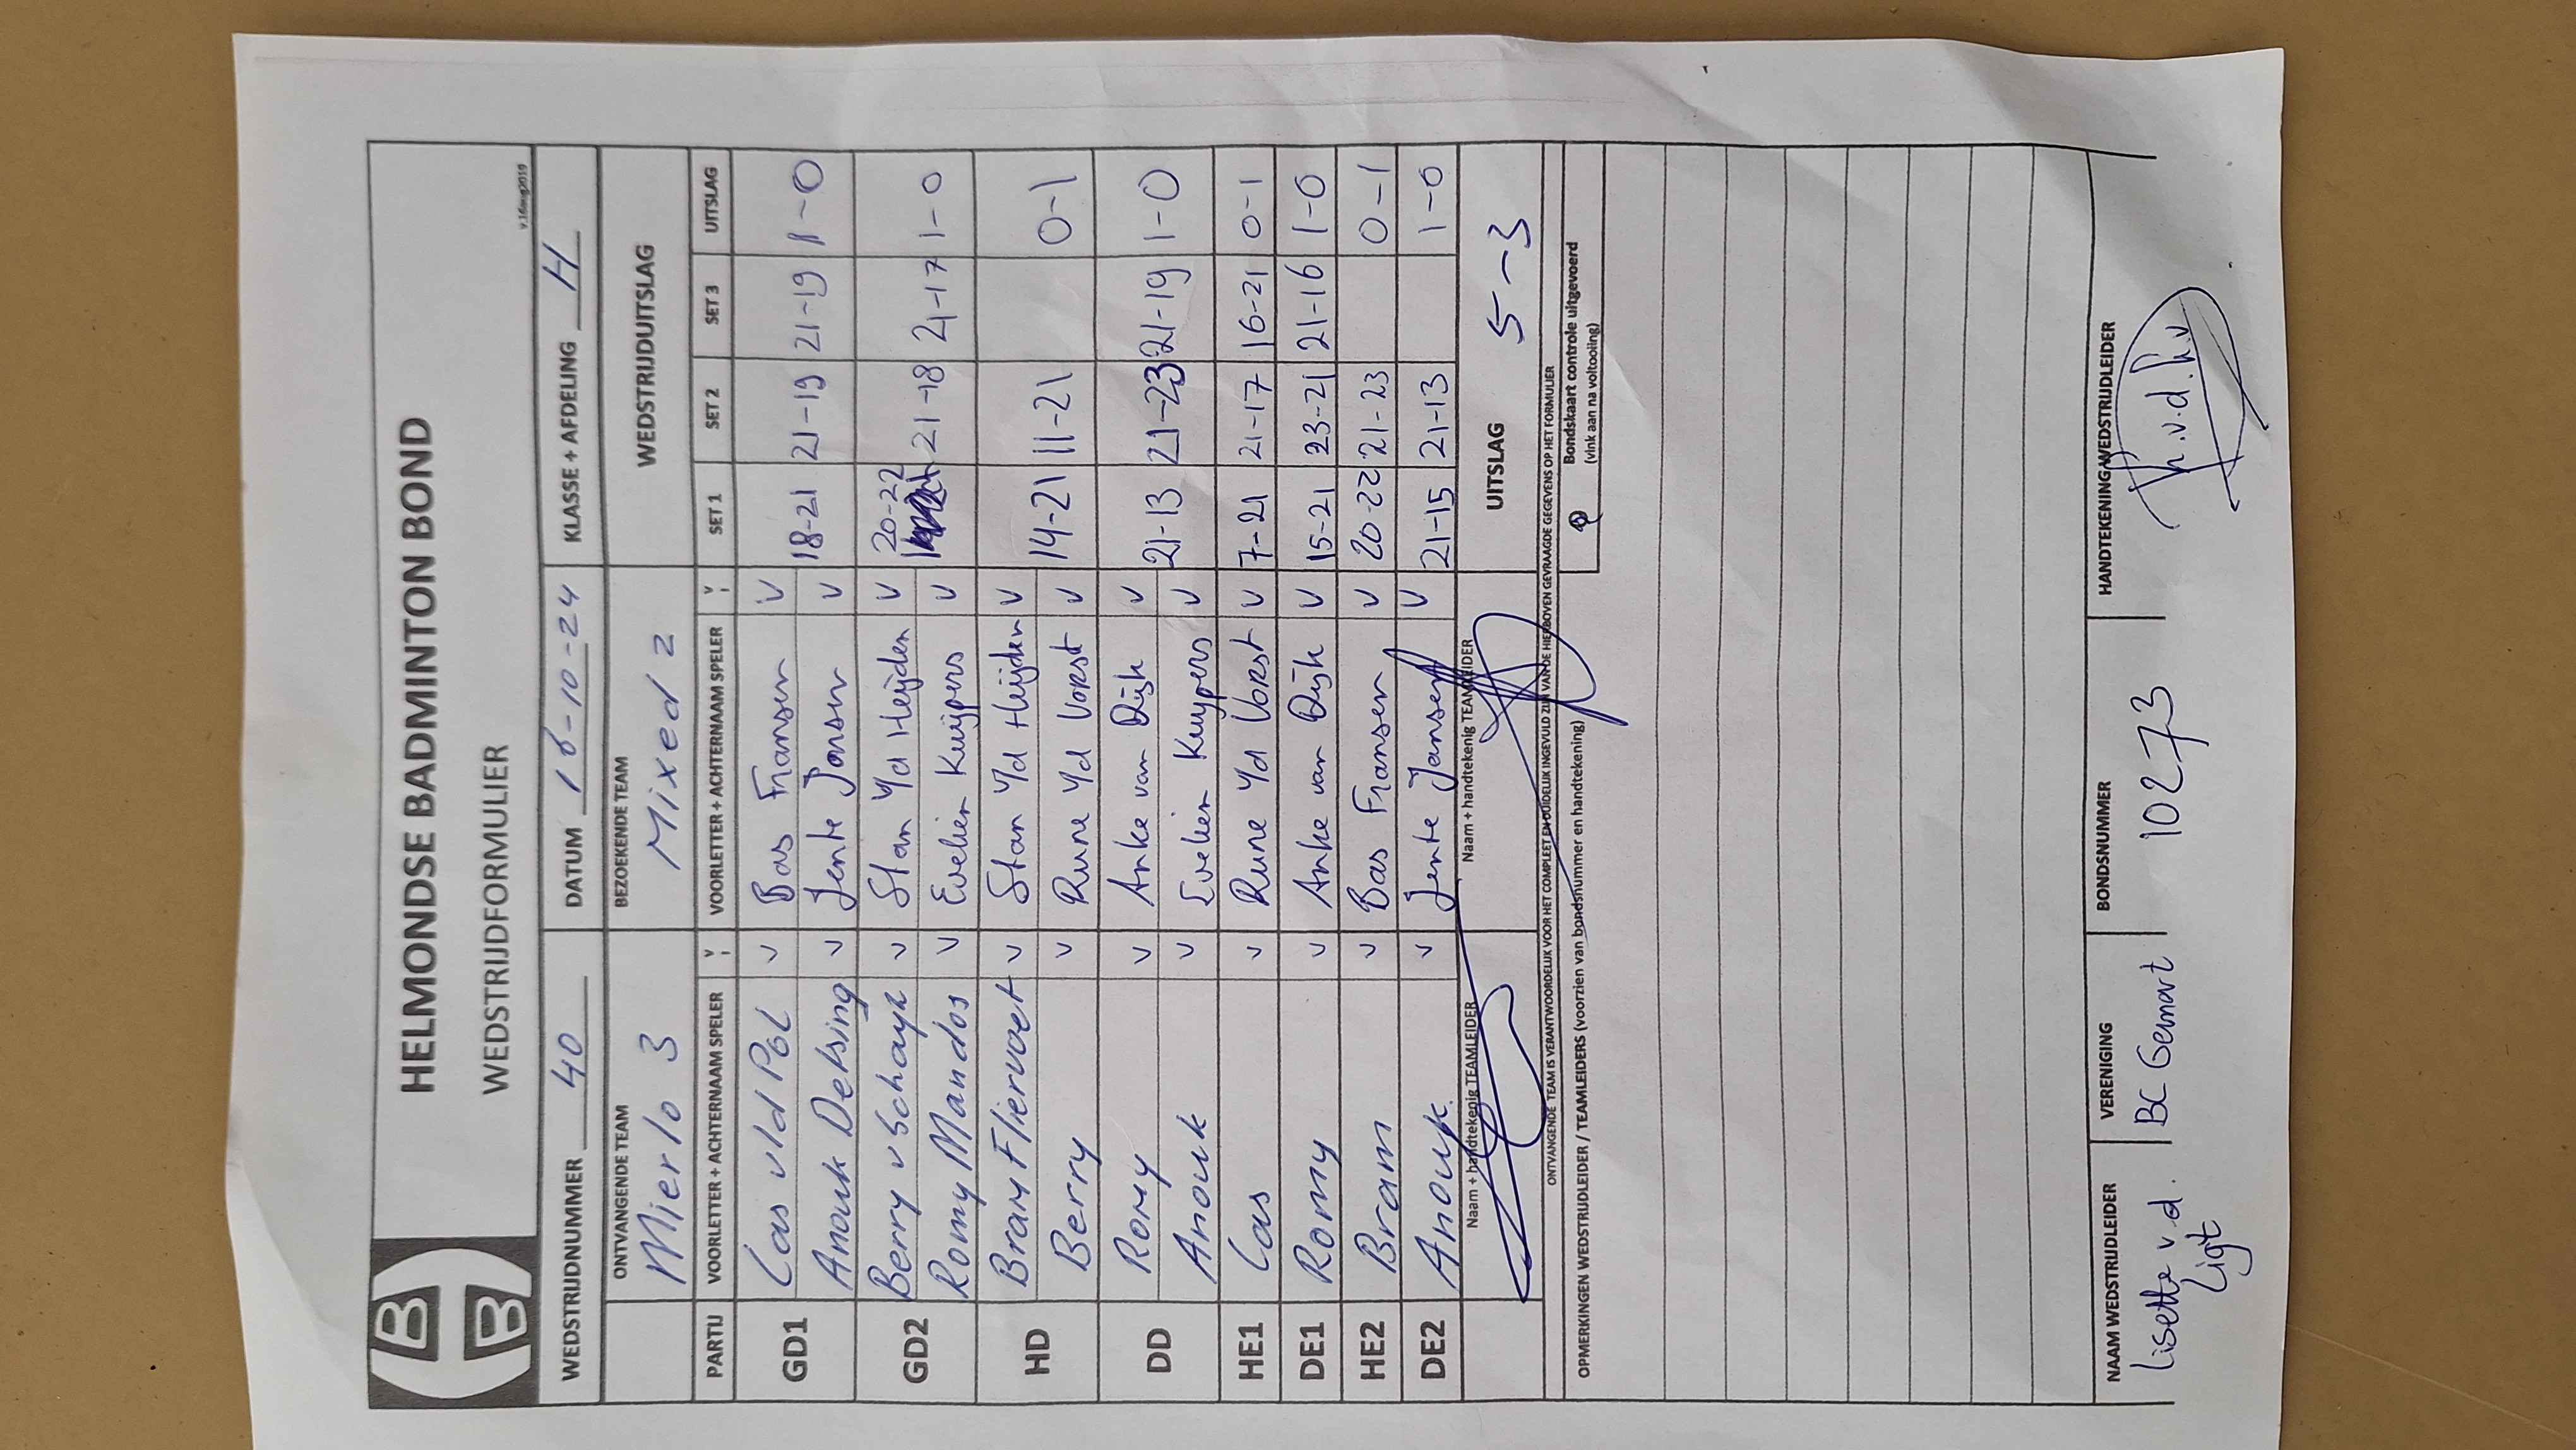 HELMONDSE BADMINTON BOND
WEDSTRIJDFORMULIER
v.16aug2019
WEDSTRIJDNUMMER 40 DATUM 16-10-24 KLASSE + AFDELING H
ONTVANGENDE TEAM BEZOEKENDE TEAM WEDSTRIJDUITSLAG
Mierlo 3 Mixed 2
PARTIJ VOORLETTER + ACHTERNAAM SPELER V VOORLETTER + ACHTERNAAM SPELER V SET 1 SET 2 SET 3 UITSLAG
GD1 Cas v/d Pol v Bas Fransen v 18-21 21-19 21-19 1-0
Anouk Delsing v Jente Jansen v
GD2 Berry v Schayk v Stan v/d Heijden v 20-22 21-18 21-17 1-0
Romy Mandos v Evelien Kuijpers v
HD Bram Fliervoet v Stan v/d Heijden v 14-21 11-21 0-1
Berry v Rune v/d Vorst v
DD Romy v Anke van Dijk v 21-13 21-23 21-19 1-0
Anouk v Evelien Kuijpers v
HE1 Cas v Rune v/d Vorst v 7-21 21-17 16-21 0-1
DE1 Romy v Anke van Dijk v 15-21 23-21 21-16 1-0
HE2 Bram v Bas Fransen v 20-22 21-23 0-1
DE2 Anouk v Jente Jansen v 21-15 21-13 1-0
Naam + handtekenig TEAMLEIDER Naam + handtekenig TEAMLEIDER UITSLAG 5-3
ONTVANGENDE TEAM IS VERANTWOORDELIJK VOOR HET COMPLEET EN DUIDELIJK INGEVULD ZIJN VAN DE HIERBOVEN GEVRAAGDE GEGEVENS OP HET FORMULIER
OPMERKINGEN WEDSTRIJDLEIDER / TEAMLEIDERS (voorzien van bondsnummer en handtekening) Bondskaart controle uitgevoerd
(vink aan na voltooiing)
NAAM WEDSTRIJDLEIDER VERENIGING BONDSNUMMER HANDTEKENING WEDSTRIJDLEIDER
Lisette v.d. Ligt BC Gemert 10273